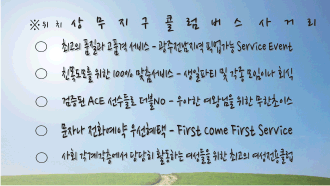 ※위치 상무지구콜럼버스사거리
○ 최고의 품질과 고품격 서비스 - 광주전남지역 픽업가능 Service Event
○ 친목도모를 위한 100% 맞춤서비스 - 생일파티 및 각종 모임이나 회식
○ 검증된 ACE 선수들로 더블NO - 우아한 여왕님을 위한 무한초이스
○ 문자나 전화예약 우선혜택 - First come First Service
○ 사회 각계각층에서 당당히 활동하는 여성들을 위한 최고의 여성전용클럽